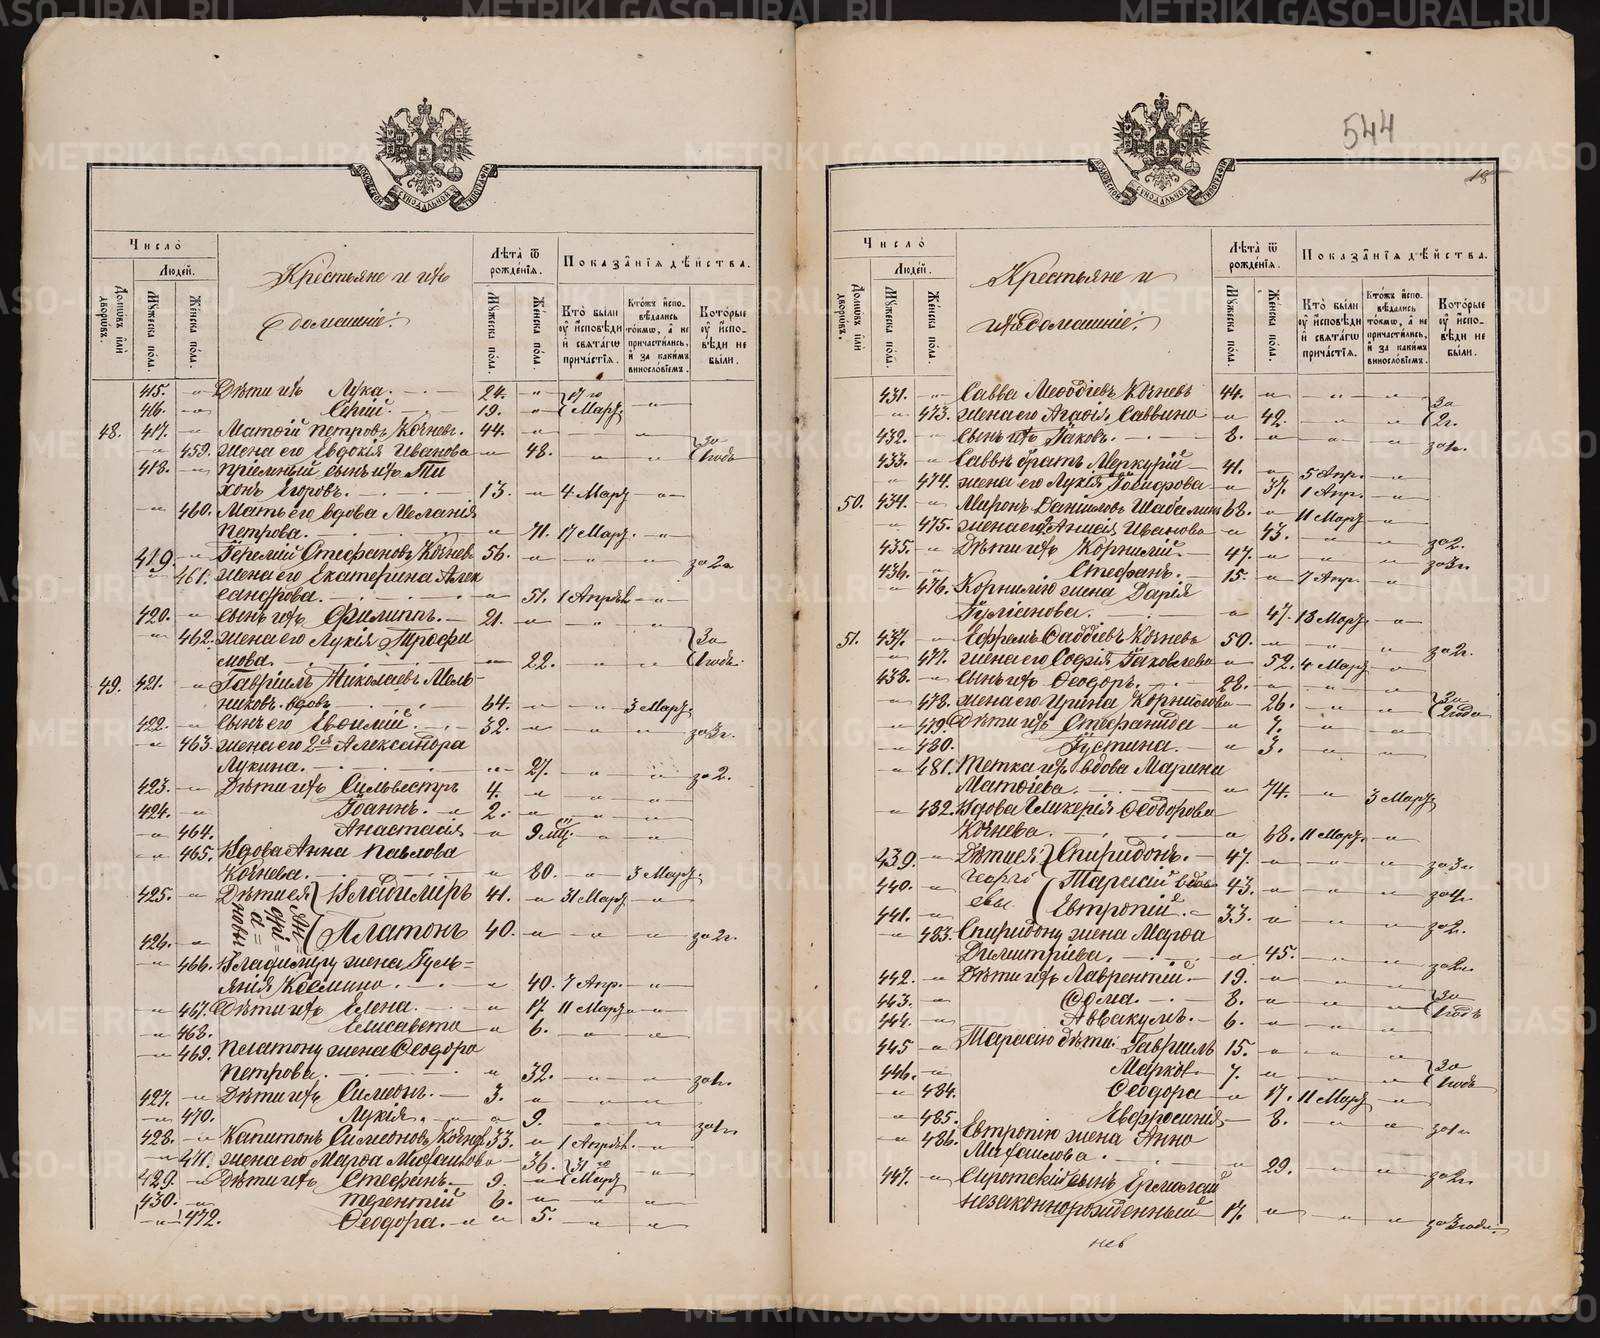 544
18
Число̀
Людей.
Домѡвъ или дворѡвъ.
Мужеска пола.
Женска пола.
Крестьяне и ихъ
домашніе:
Лѣта ѿ рождéнїѧ.
Мужеска пола.
Женска пола.
Показáнїѧ дѣ́йства.
Кто̀ были оу҆ и҆сповѣди и҆ свѧтáгѡ причáстїѧ.
Кто́жъ и҆сповѣдались то́кмѡ, а҆ не причастились, и҆ за какимъ винословіемъ.
Кото́рые оу҆ и҆сповѣди не были.
415. Дѣти ихъ Лука. 24. 17 го
416. Сергій. 19. Мар.
48. 417. Матѳій Петровъ Кочневъ. 44.
459. жена его Евдокія Иванова 48. За 1 годъ
418. пріемный сынъ ихъ Ти
хонъ Егоровъ. 13. 4 Мар.
460. Мать его вдова Меланія
Петрова. 71. 17 Мар.
419. Іеремій Стефановъ Кочневъ 56. за 2 г.
461. жена его Екатерина Алек
сандрова. 51. 1 Апрѣл.
420. сынъ ихъ Филиппъ. 21.
462. жена его Лукія Трофи
мова. 22. За 1 годъ.
49. 421. Гавріилъ Николаевъ Мель-
никовъ. вдовъ. 64. 3 Мар.
422. сынъ его Евѳимій 32. за 3 г.
463. жена его 2я Александра
Лукина. 27. за 2.
423. Дѣти ихъ Сильвестръ 4.
424. Іоаннъ. 2.
464. Анастасія 9 мц.
465. Вдова Анна Павлова
Кочнева. 80. 3 Мар.
425. Дѣти ея Владиміръ 41. 31 Мар.
426. Платонъ 40. за 2 г.
466. Владиміру жена Гуль-
янія Космина 40. 7 Апр.
467. Дѣти ихъ Елена. 17. 11 Мар.
468. Елисавета 6.
469. Платону жена Ѳеодора
Петрова. 32. за 1 г.
427. Дѣти ихъ Симеонъ. 3.
470. Лукія. 9. за 1 г.
428. Капитонъ Симеоновъ Кочнев. 33. 1 Апрѣл.
471. жена его Марѳа Михайлова 36. 31 го
429. Дѣти ихъ Стефанъ. 9. Мар.
430. Терентій 6.
472. Ѳеодора. 5.
Число̀
Людéй.
Домѡвъ или дворѡвъ.
Мужеска пола.
Женска пола.
Крестьяне и
ихъ домашніе:
Лѣта ѿ рождéнїѧ.
Мужеска пола.
Женска пола.
Показáнїѧ дѣ́йства.
Кто̀ были оу҆ и҆сповѣди и҆ свѧтáгѡ причáстїѧ.
Кто́жъ и҆сповѣдались то́кмѡ, а҆ не причастились, и҆ за какимъ винословіемъ.
Кото́рые оу҆ и҆сповѣди не были.
431. Савва Меѳодіевъ Кочневъ 44. За
473. жена его Агаѳія Саввина 42. 2 г.
432. сынъ ихъ Іаковъ. 8. за 1 г.
433. Саввѣ братъ Меркурій 41. 5 Апр.
474. жена его Лукія Іосифова 37. 1 Апр.
50. 434. Миронъ Даніиловъ Шабалинъ 68. 11 Мар.
475. жена его Анисія Иванова 43. за 2.
435. Дѣти ихъ Корнилій. 47. за 3 г.
436. Стефанъ. 15. 7 Апр.
476. Корнилію жена Дарія
Гуліанова. 47. 13 Мар.
51. 437. Ефремъ Фаддіевъ Кочневъ 50. за 2 г.
477. жена его Софія Іаковлева 52. 4 Мар.
438. сынъ ихъ Ѳеодоръ. 28.
478. жена его Ирина Корнилова 26. За 2 года
479. Дѣти ихъ Стефанида 7.
480. Густина. 3.
481. Тетка ихъ вдова Марина
Матѳіева. 74. 3 Мар.
482. Вдова Гликерія Ѳеодорова
Кочнева. 68. 11 Мар.
439. Дѣти ея Спиридонъ. 47. за 3 г.
440. Георгі евы. Тарасій вдовъ 43.
441. Евтропій. 33. за 2.
483. Спиридону жена Марѳа
Димитріева. 45. за 2 г.
442. Дѣти ихъ Лаврентій 19. За
443. Ѳома. 8. 1 годъ
444. Аввакумъ. 6.
445 Тарасію дѣти: Гавріилъ 15. За
446. Марко. 7. 1 годъ
484. Ѳеодора 17. 11 Мар.
485. Евфросинія 8. за 1 г
486. Евтропію жена Анна
Михаилова. 29. за 2 г.
447. Сиротскій сынъ Ермолай
незаконнорожденный 17. за 3 года.